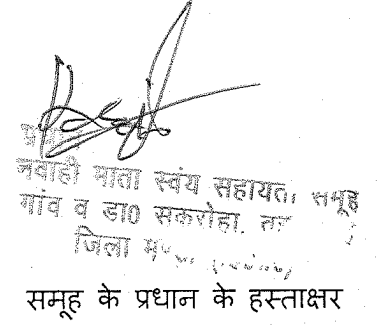 जवाही माता स्वंय सहायता समूह
गांव व डा0 सकरोहा.
जिला
समूह के प्रधान के हस्ताक्षर